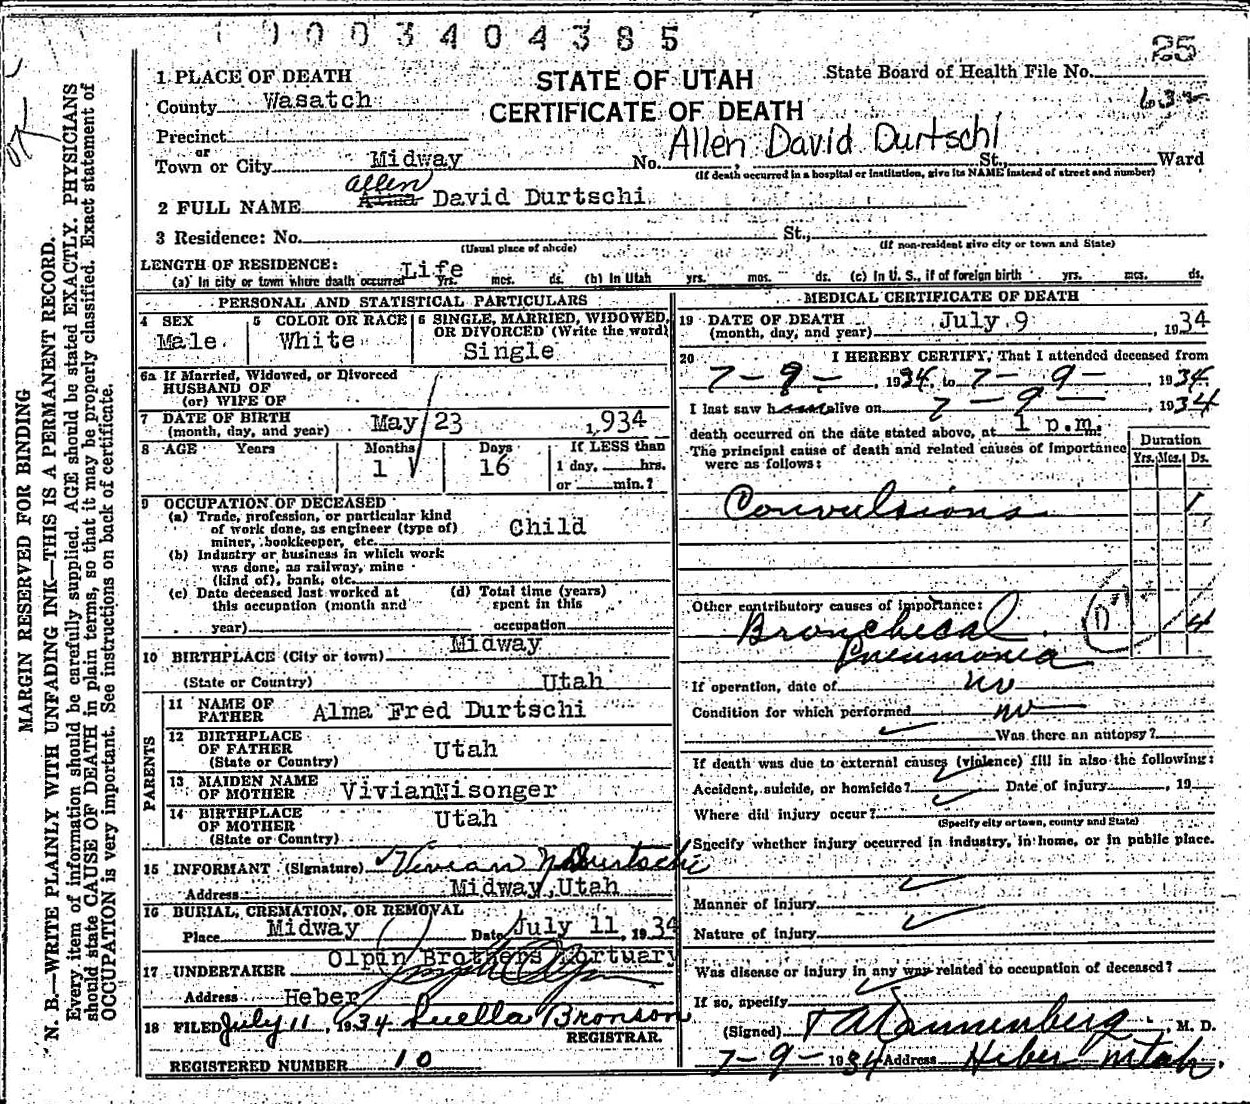 1003404385
25
1. PLACE OF DEATH
STATE OF UTAH
State Board of Health File No.
County Wasatch
CERTIFICATE OF DEATH
632
Precinct
Allen David Durtschi
or
Town or City Midway No. St., Ward
(If death occurred in a hospital or institution, give its NAME instead of street and number)
Allen
2 FULL NAME Alma David Durtschi
3 Residence: No. St.,
(Usual place of abode) (If non-resident give city or town and State)
LENGTH OF RESIDENCE:
(a) In city or town where death occurred Life yrs. mos. ds. (b) In Utah yrs. mos. ds. (c) In U. S., if of foreign birth yrs. mos. ds.
PERSONAL AND STATISTICAL PARTICULARS
4 SEX
Male
5 COLOR OR RACE
White
6 SINGLE, MARRIED, WIDOWED, OR DIVORCED (Write the word)
Single
6a If Married, Widowed, or Divorced
HUSBAND OF
(or) WIFE OF
7 DATE OF BIRTH
(month, day, and year) May 23 1934
8 AGE Years Months Days If LESS than
1 16 1 day, hrs.
or min.?
9 OCCUPATION OF DECEASED
(a) Trade, profession, or particular kind
of work done, as engineer (type of)
miner, bookkeeper, etc. Child
(b) Industry or business in which work
was done, as railway, mine
(kind of), bank, etc.
(c) Date deceased last worked at
this occupation (month and
year)
(d) Total time (years)
spent in this
occupation
10 BIRTHPLACE (City or town) Midway
(State or Country) Utah
PARENTS
11 NAME OF
FATHER Alma Fred Durtschi
12 BIRTHPLACE
OF FATHER Utah
(State or Country)
13 MAIDEN NAME
OF MOTHER VivianNisonger
14 BIRTHPLACE
OF MOTHER Utah
(State or Country)
15 INFORMANT (Signature) Vivian N Durtschi
Address Midway, Utah
16 BURIAL, CREMATION, OR REMOVAL
Place Midway Date July 11, 1934
Olpin Brothers Mortuary
17 UNDERTAKER
Address Heber
18 FILED July 11, 1934 Luella Bronson
REGISTRAR.
REGISTERED NUMBER 10
MEDICAL CERTIFICATE OF DEATH
19 DATE OF DEATH
(month, day, and year) July 9, 1934
20 I HEREBY CERTIFY, That I attended deceased from
7-9-, 1934, to 7-9-, 1934.
I last saw h alive on 7-9-, 1934
death occurred on the date stated above, at 1 p.m.
The principal cause of death and related causes of importance
were as follows:
Duration
Yrs. Mos. Ds.
Convulsions 1
Other contributory causes of importance:
Bronchical 4
Pneumonia
If operation, date of no
Condition for which performed no
Was there an autopsy?
If death was due to external causes (violence) fill in also the following:
Accident, suicide, or homicide? Date of injury, 19
Where did injury occur?
(Specify city or town, county and State)
Specify whether injury occurred in industry, in home, or in public place.
Manner of injury
Nature of injury
Was disease or injury in any way related to occupation of deceased?
If so, specify
(Signed) Dannenberg, M. D.
7-9-1934 Address Heber Utah.
MARGIN RESERVED FOR BINDING
N. B.—WRITE PLAINLY WITH UNFADING INK—THIS IS A PERMANENT RECORD.
Every item of information should be carefully supplied. AGE should be stated EXACTLY. PHYSICIANS
should state CAUSE OF DEATH in plain terms, so that it may be properly classified. Exact statement of
OCCUPATION is very important. See instructions on back of certificate.